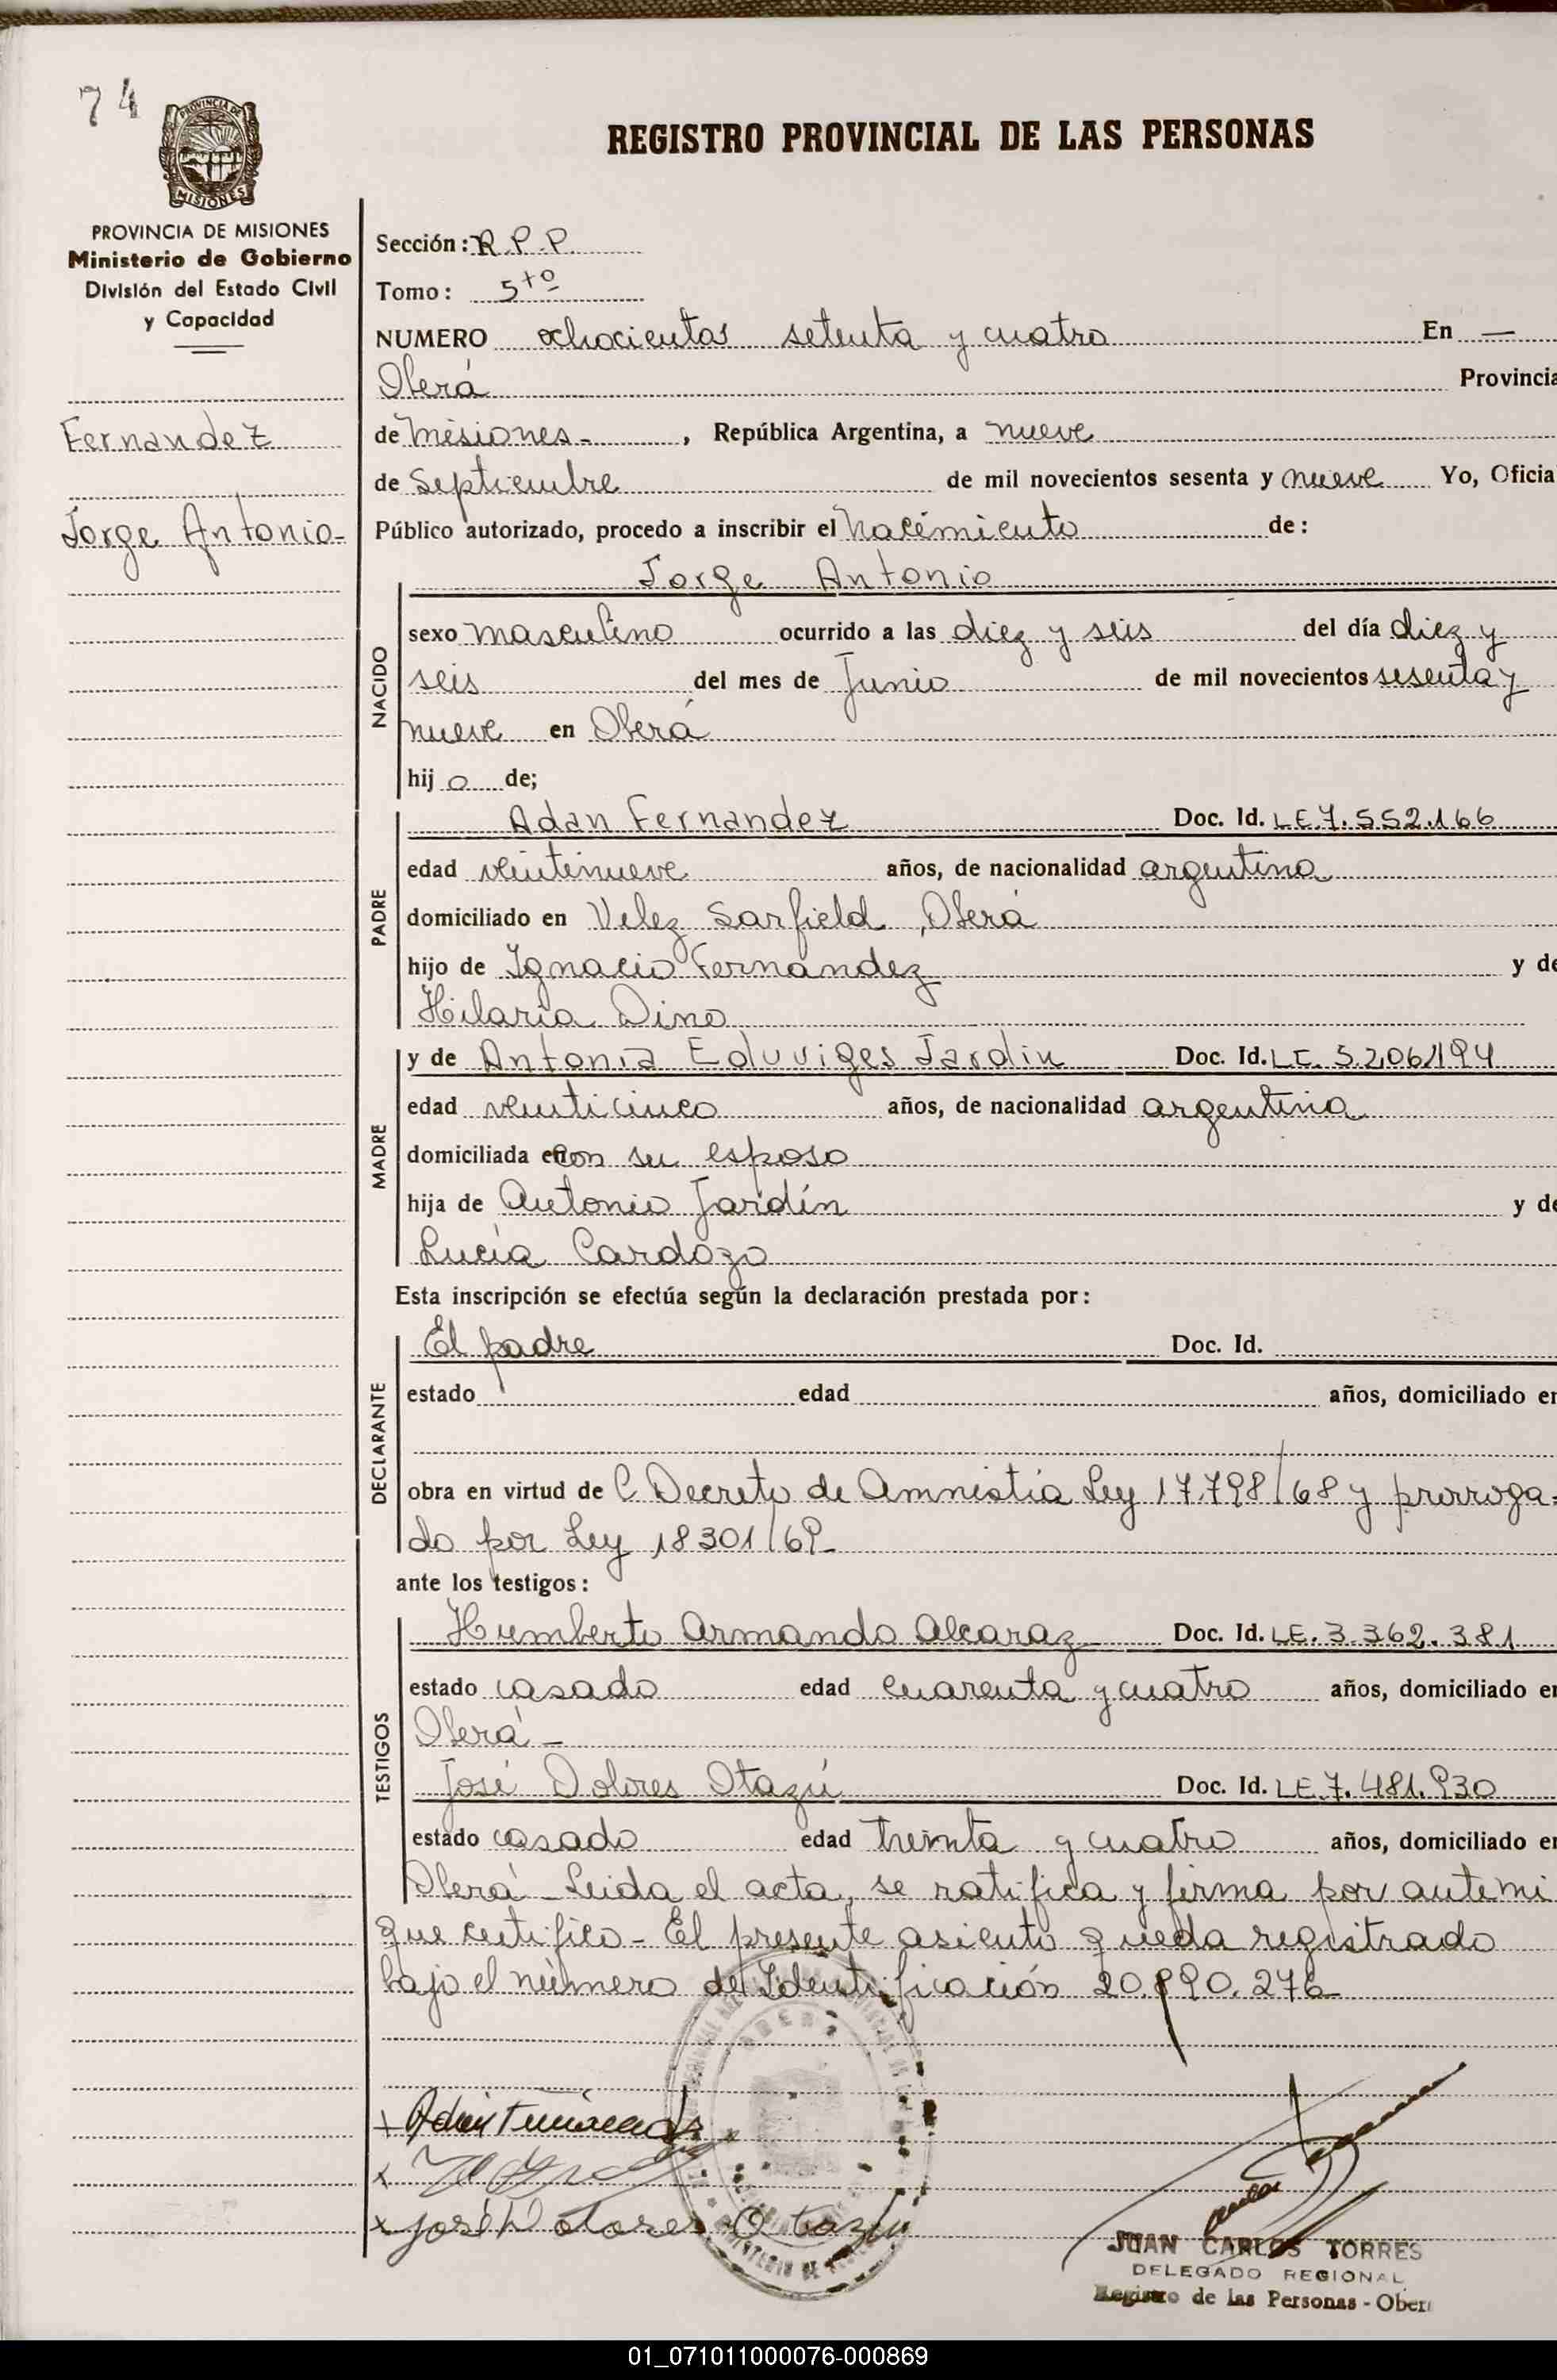 74
PROVINCIA DE
MISIONES
REGISTRO PROVINCIAL DE LAS PERSONAS
PROVINCIA DE MISIONES
Ministerio de Gobierno
División del Estado Civil
y Capacidad
Fernandez
Jorge Antonio-
Sección: R.P.P.
Tomo: 5to
NUMERO ochocientos setenta y cuatro En —
Oberá Provincia
de Misiones-, República Argentina, a nueve
de Septiembre de mil novecientos sesenta y nueve Yo, Oficia
Público autorizado, procedo a inscribir el Nacimiento de:
Jorge Antonio
NACIDO
sexo masculino ocurrido a las diez y seis del día diez y
seis del mes de Junio de mil novecientos sesenta y
nueve en Oberá
hijo de;
Adan Fernandez Doc. Id. LE.7.552.166
PADRE
edad veintinueve años, de nacionalidad argentina
domiciliado en Velez Sarfield, Oberá
hijo de Ignacio Fernández y de
Hilaria Dino
y de Antonia Eduviges Jardin Doc. Id. LC. 5.206.194
MADRE
edad veinticinco años, de nacionalidad argentina
domiciliada en con su esposo
hija de Antonio Jardín y de
Lucía Cardozo
Esta inscripción se efectúa según la declaración prestada por:
El padre Doc. Id.
DECLARANTE
estado edad años, domiciliado en
obra en virtud de Decreto de Amnistía Ley 17.798/68 y prorroga=
do por Ley 18301/69-
ante los testigos:
Humberto Armando Alcaraz Doc. Id. LE. 3.362.381
TESTIGOS
estado casado edad cuarenta y cuatro años, domiciliado en
Oberá-
José Dolores Otazú Doc. Id. LE.7.481.930
estado casado edad treinta y cuatro años, domiciliado en
Oberá - Leida el acta, se ratifica y firma por ante mi
que certifico - El presente asiento queda registrado
bajo el número de Identificación 20.890.276
José Dolores Otazú
JUAN CARLOS TORRES
DELEGADO REGIONAL
Registro de las Personas - Ober
01_071011000076-000869